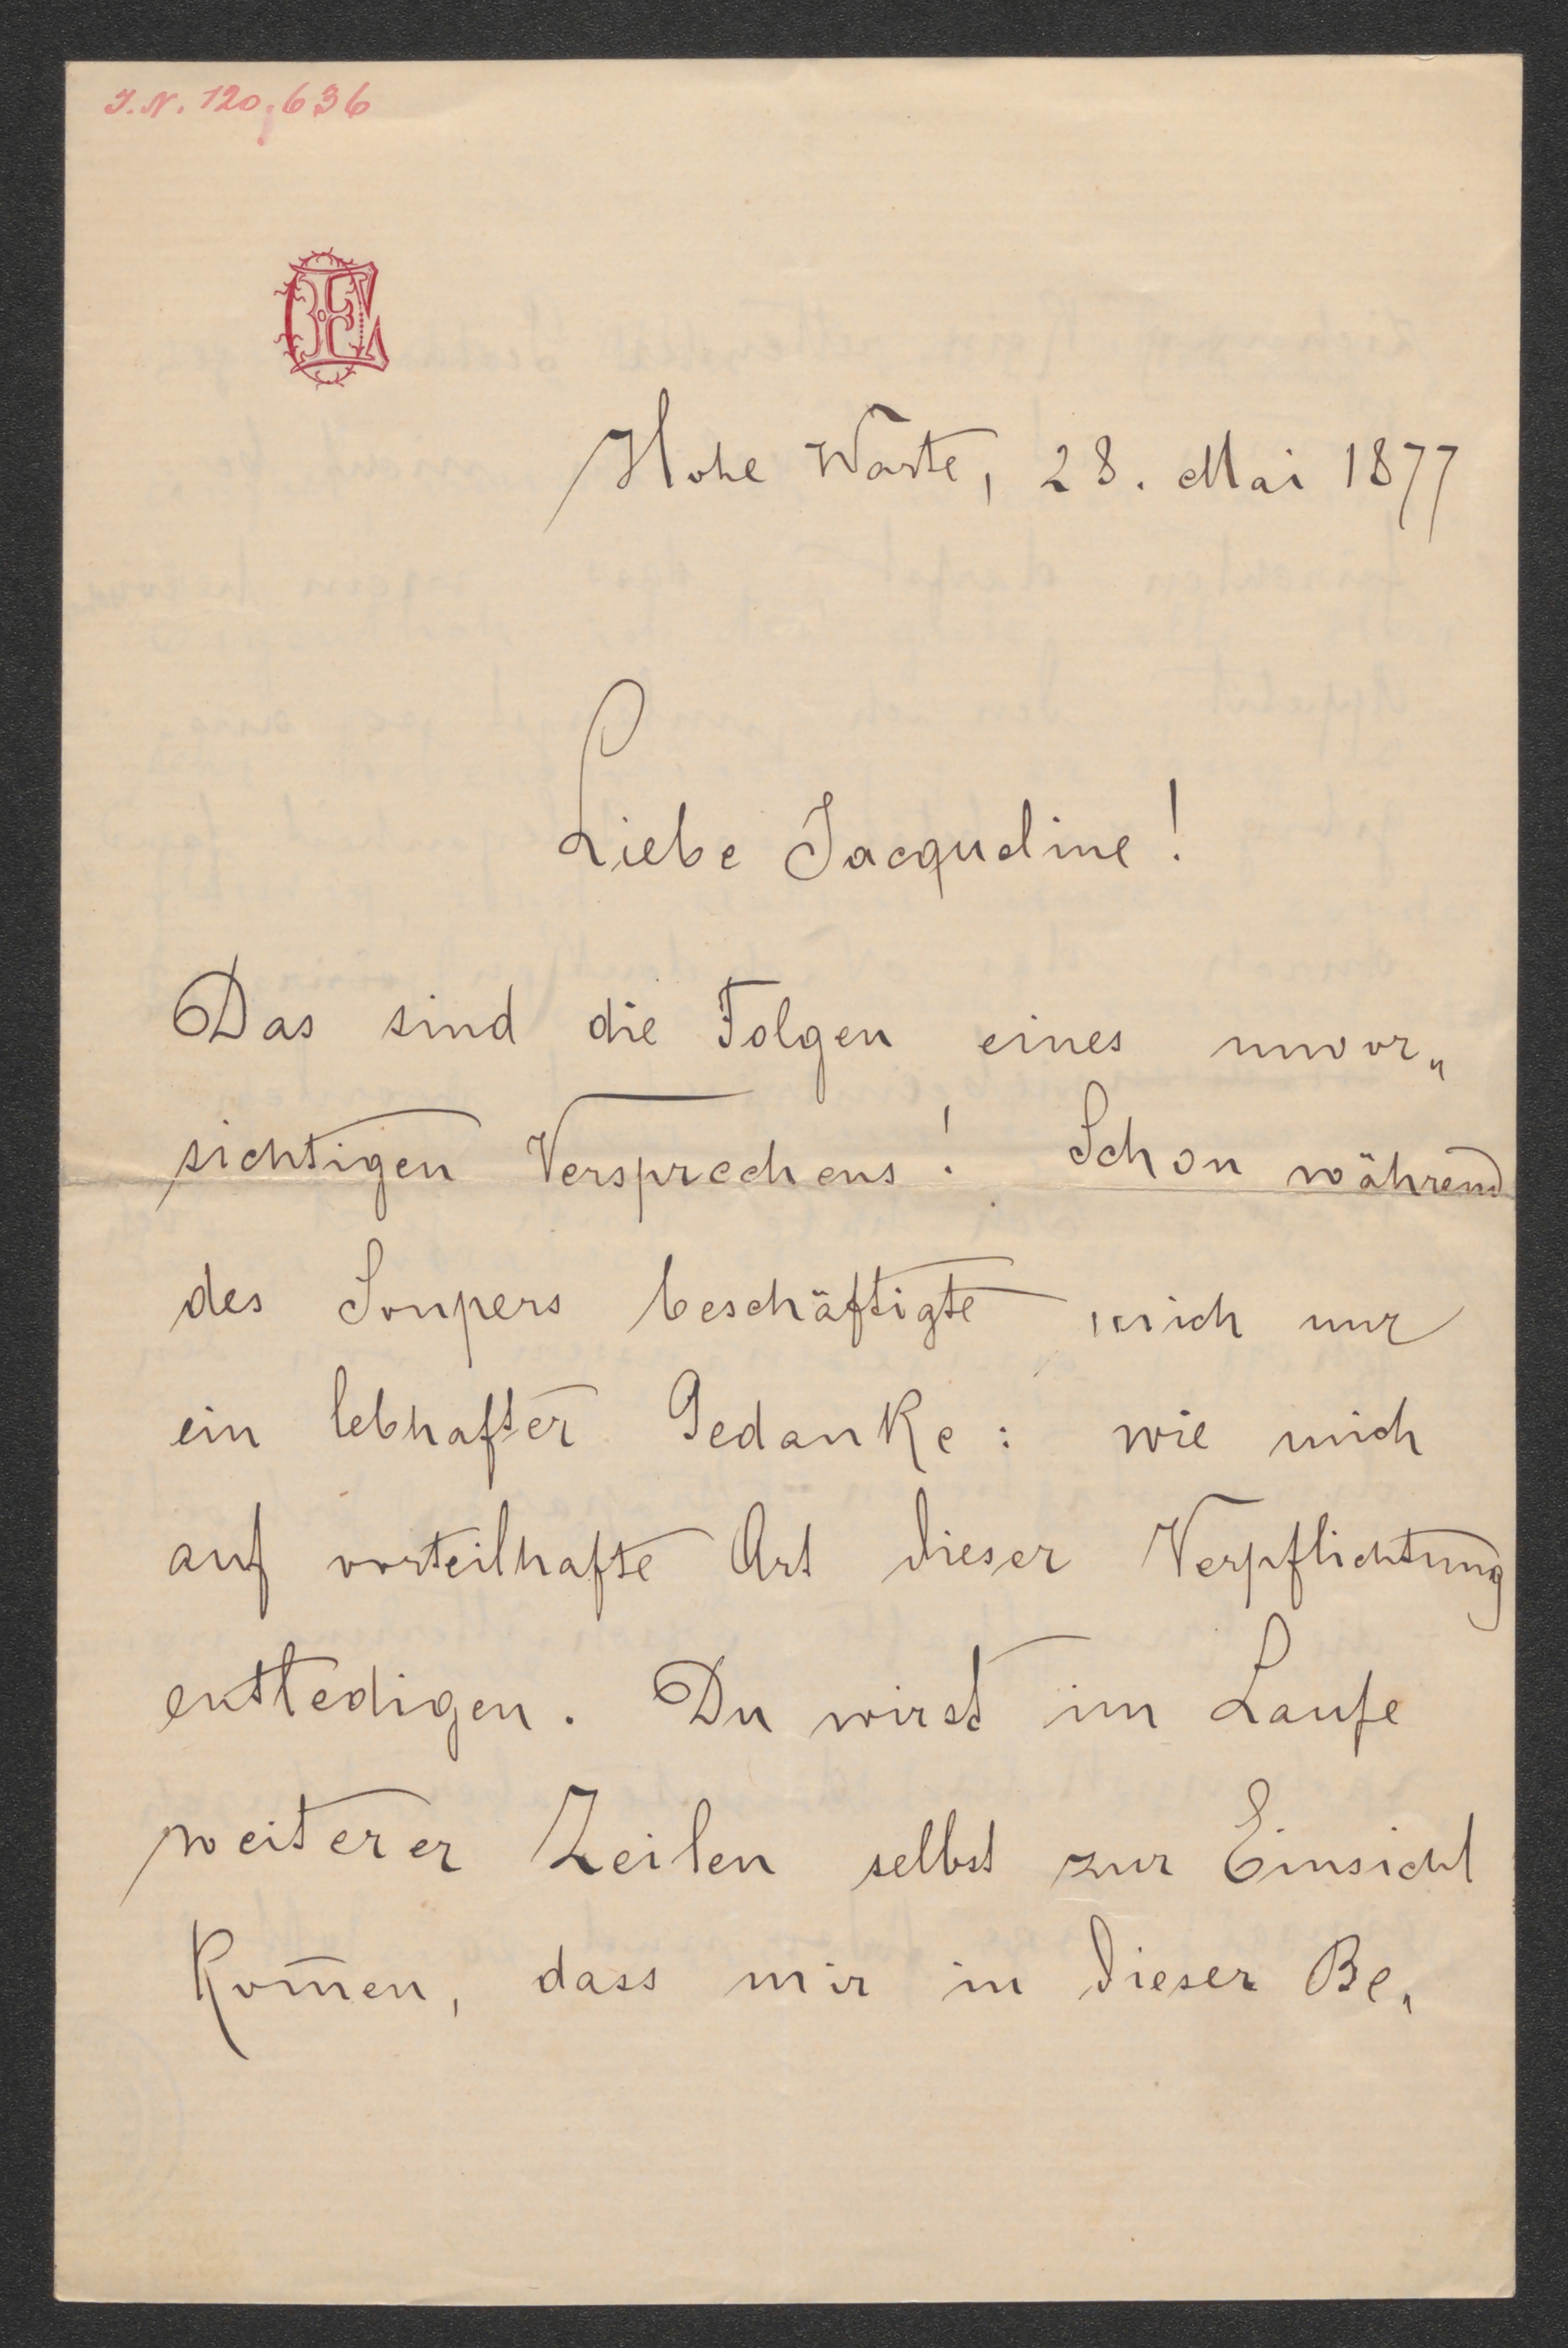 J.N. 120,636
Hohe Warte, 28. Mai 1877
Liebe Jacqueline!
Das sind die Folgen eines unvor„
sichtigen Versprechens! Schon während
des Soupers beschäftigte mich nur
ein lebhafter Gedanke: wie mich
auf vorteilhafte Art dieser Verpflichtung
entledigen. Du wirst im Laufe
weiterer Zeilen selbst zur Einsicht
kom̄en, dass mir in dieser Be„